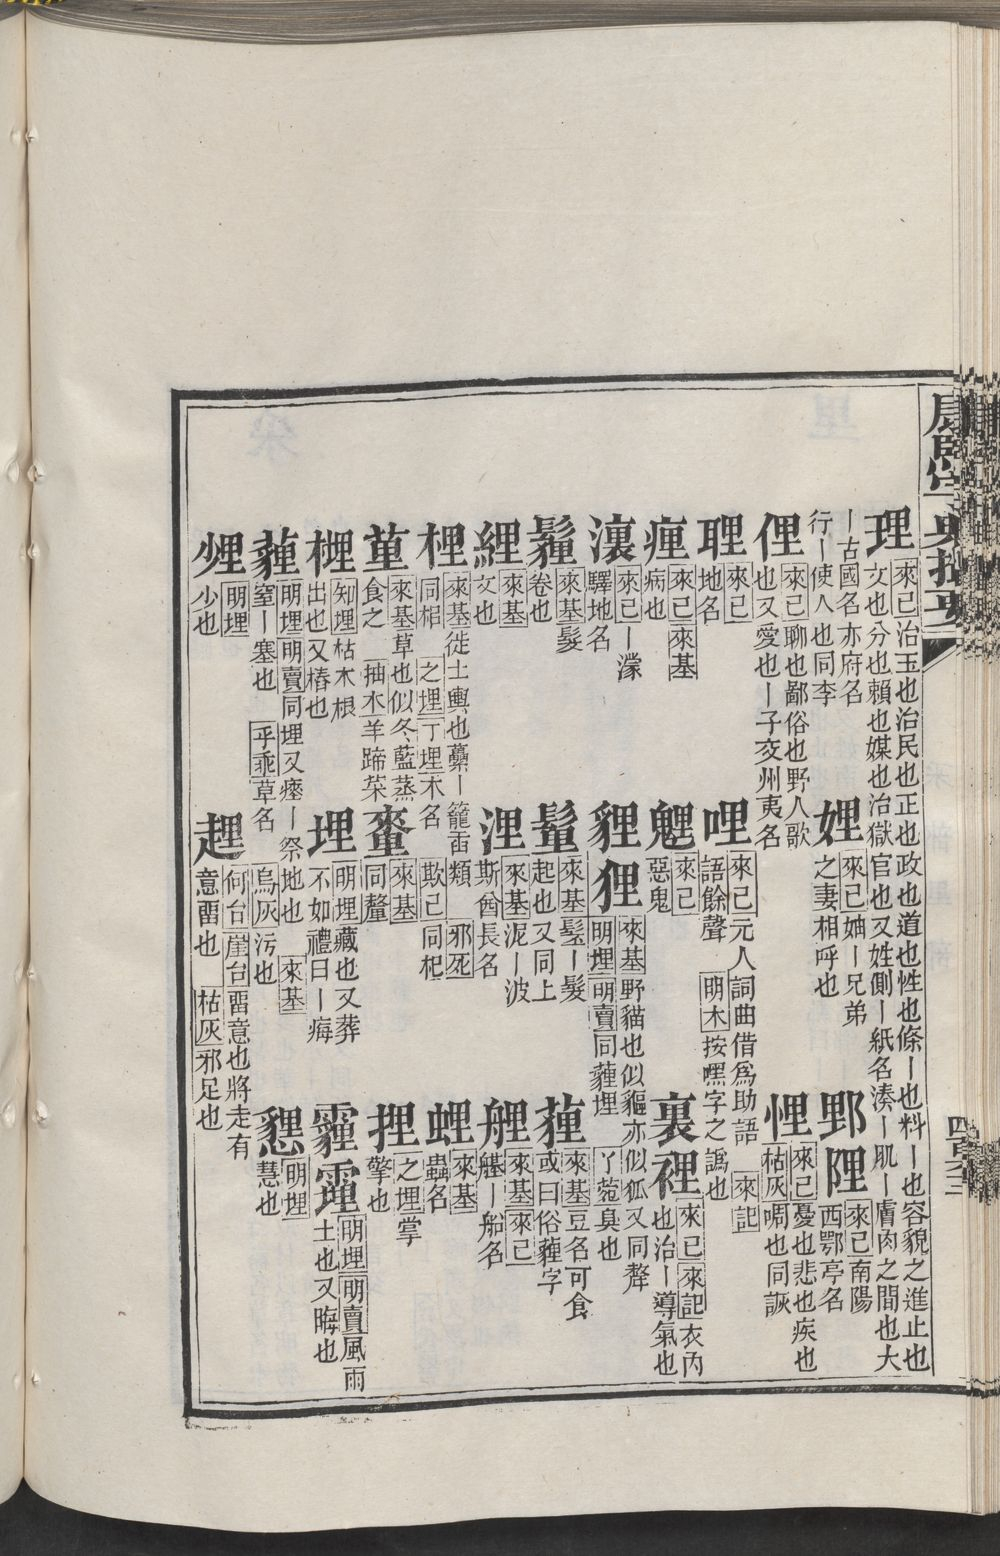 康熙字典撮要
理 來己治玉也治民也正也政也道也性也條丨也料丨也容貌之進止也
文也分也賴也媒也治獄官也又姓側丨紙名湊丨肌丨膚肉之間也大
丨古國名亦府名
行丨使人也同李
娌 來己妯丨兄弟
之妻相呼也
郢 隉 來己南陽
西鄂亭名
俚 來己聊也鄙俗也野人歌
也又愛也丨子交州夷名
悝 來己憂也悲也疾也
枯灰啁也同詼
聖 來己
地名
哩 來己元人詞曲借爲助語 來記
語餘聲 明木按嘿字之譌也
㾖 來己來基
病也
魎 來己
惡鬼
裏裡 來己來記衣內
也治丨導氣也
瀼 來己丨濛
驛地名
貍狸 來基野貓也似貙亦似狐又同犛
明埋明賣同薶埋 丫菀臭也
鬖 來基髮
卷也
鬒 來基髽丨髮
起也又同上
䔣 來基豆名可食
或曰俗薶字
纆 來基
文也
浬 來基泥丨波
斯酋長名
艃 來基來己
艖丨船名
梩 來基徙土轝也蘽丨籠臿類 邪死
同梠 之埋丁埋木名 欺己同杞
蟶 來基
蟲名
荲 來基草也似冬藍蒸
食之 抽木羊蹄菜
嫠 來基
同釐
捚 之埋掌
擎也
梩 知埋枯木根
出也又樁也
埋 明埋藏也又葬
不如禮曰丨痗
霾䨪 明埋明賣風雨
土也又晦也
薶 明埋明賣同埋又瘞丨祭地也 來基
窒丨塞也 乎乖草名 烏灰污也
懇 明埋
慧也
㷟 明埋
少也
趩 何台崖台畱意也將走有
意畱也 枯灰邪足也
四百六十二